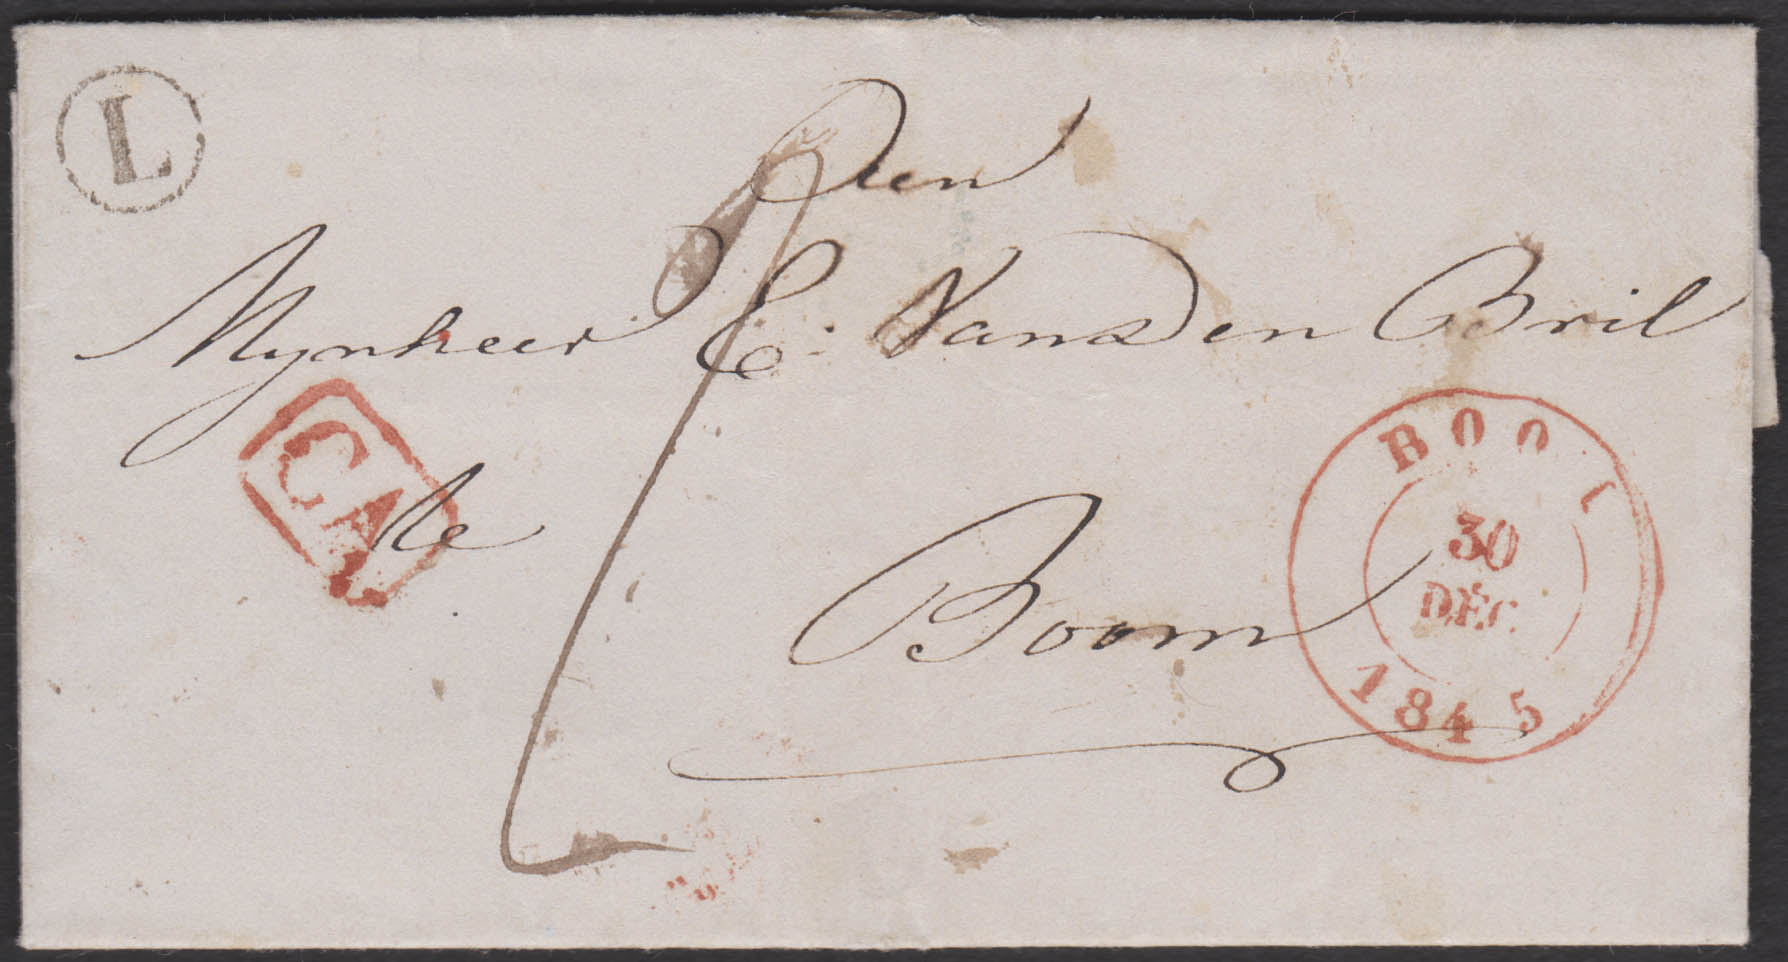 L
Aen
Mynheer E. Vanden Bril
CA
te
Boom
BOO
30
DÉC.
1845
2